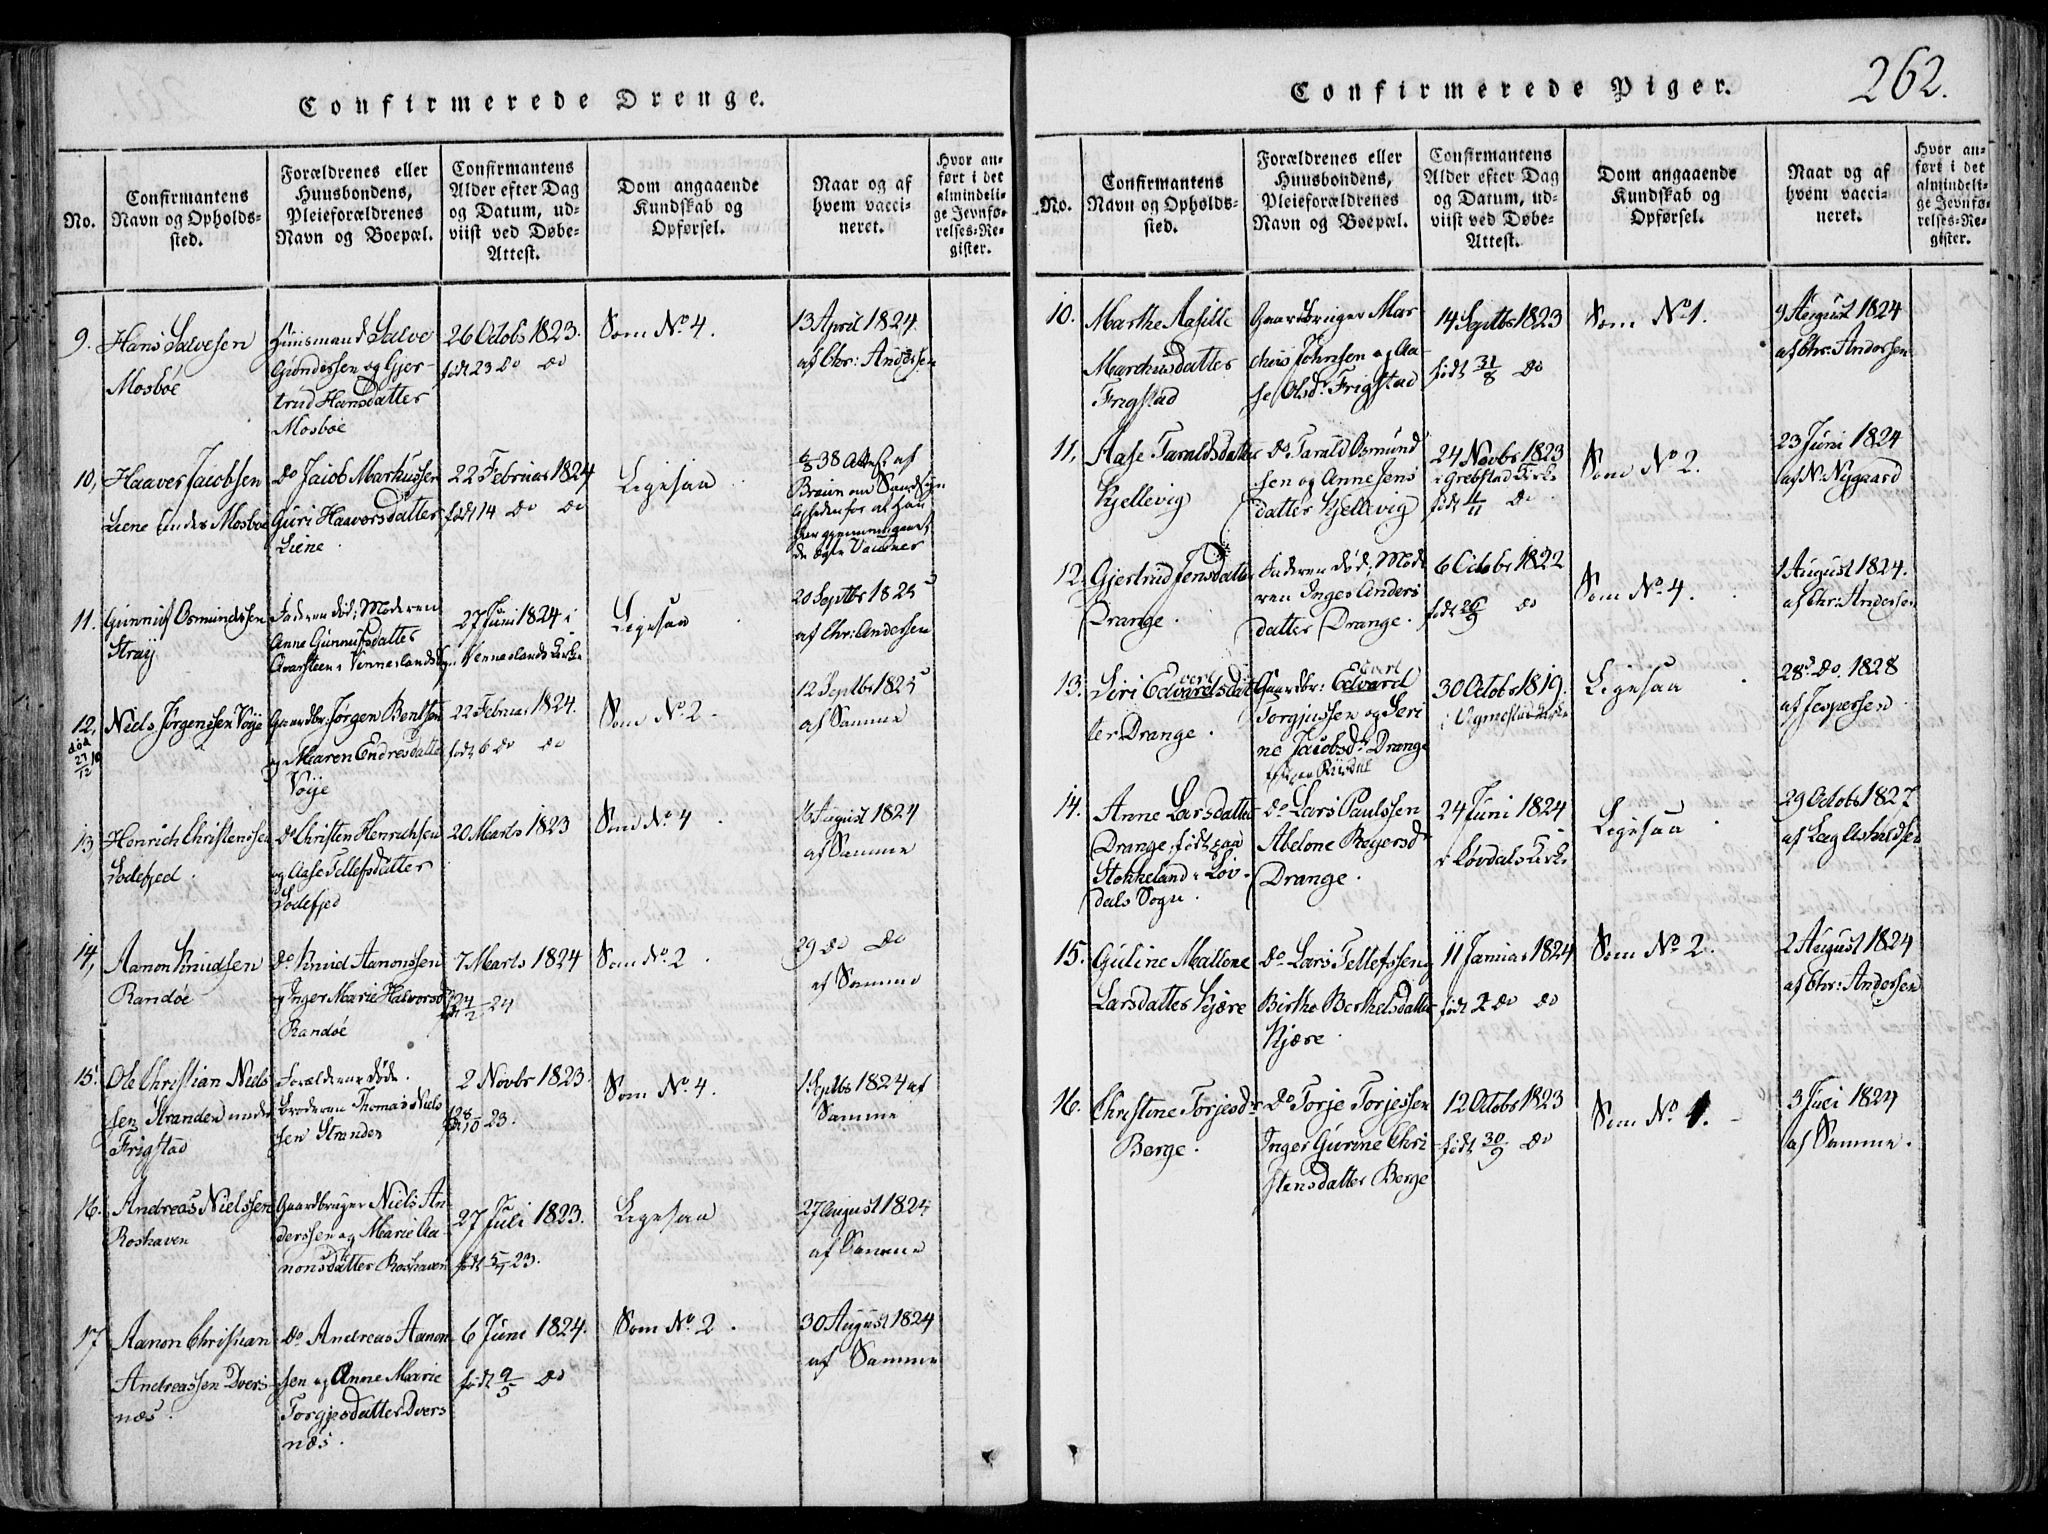 Confirmerede Drenge.
No.
Confirmantens
Navn og Opholds-
sted.
Forældrenes eller
Huusbondens,
Pleieforældrenes
Navn og Boepæl.
Confirmantens
Alder efter Dag
og Datum, ud-
viist ved Døbe-
Attest.
Dom angaaende
Kundskab og
Opførsel.
Naar og af
hvem vacci-
neret.
Hvor an-
ført i det
almindeli-
ge Jevnfø-
relses-Re-
gister.
9.
Hans Salvesen
Mosbøe
Huusmand Salve
Gundersen og Gjer-
trud Hansdatter
Mosbøe
26 Octobr 1823.
født 23 do do
Som No 4.
13 April 1824
af Chr: Andersen
10,
Haaver Jacobsen
Liene under Mosbøe
do Jacob Markussen
Guri Haaversdatter
Liene.
22 Februar 1824
født 14 do do
Ligesaa
6/8 38 Attest af
Bruun om Sandsyn
ligheden for at han
har gjennemgaaet
de ægte Vacciner
11.
Gunnuf Osmundsen
Stray
Faderen død; Moderen
Anne Gunnufsdatter
Qvarsteen i Venneslands
27 Juni 1824 i
Venneslands Kirke
Ligesaa
20 Septbr 1825
af Chr: Andersen
12,
død
27/12
Niels Jørgenssen Voje
Gaardbr: Jørgen Bentsen
og Maren Endresdatter
Voje
22 Februar 1824.
født 6 do do
Som No 2.
12 Septbr 1825
af Samme
13,
Henrich Christenssen
Lodefjed.
do Christen Henrichsen
og Aase Tellefsdatter
Lodefjed
20 Marts 1823
Som No 4
16 August 1824
af Samme
14,
Aanon Knudsen
Randøe
do Knud Aanonssen
og Inger Marie Halvorsd
Randøe
7 Marts 1824
født 24/2 - 24
Som No 2.
29 do do
af Samme
15.
Ole Christian Niels
sen Stranden under
Frigstad
Forældrene døde.
Broderen Thomas Niels
sen Stranden
2 Novbr 1823.
født 28/10 - 23.
Som No 4.
1 Septbr 1824 af
Samme
16.
Andreas Nielssen
Roshaven
Gaardbruger Niels An-
derssen og Marie Aa-
nonsdatter Roshaven
27 Juli 1823.
født 5/7 23.
Ligesaa
27 August 1825
af Samme
17
Aanon Christian
Andreassen Dvers-
næs.
do Andreas Aanon
sen og Anne Marie
Torgjesdatter Dvers
næs.
6 Juni 1824.
født 9/5 do
Som No 2.
30 August 1824
af Samme
Confirmerede Piger.
262.
No.
Confirmantens
Navn og Opholds-
sted.
Forældrenes eller
Huusbondens,
Pleieforældrenes
Navn og Boepæl.
Confirmantens
Alder efter Dag
og Datum, ud-
viist ved Døbe-
Attest.
Dom angaaende
Kundskab og
Opførsel.
Naar og af
hvem vacci-
neret.
Hvor an-
ført i det
almindeli-
ge Jevnfø-
relses-Re-
gister.
10.
Marthe Aasille
Marchusdatter
Frigstad
Gaardbruger Mar
chus Johnsen og Aa-
se Olsdr Frigstad
14 Septbr 1823
født 31/8 do
Som No 1.
9 August 1824
af Chr: Andersen
11,
Aase Taraldsdatter
Kjellevig
do Tarald Osmund
sen og Anne Jens
datter Kjellevig
24 Novbr 1823
i Grebstad Kirke
født 4/11 do
Som No 2.
23 Juni 1824
af N. Nygaard
12.
Gjertrud Jensdatter
Drange.
Faderen død; Mode
ren Inger Anders
datter Drange.
6 Octobr 1822
født 26/9 do
Som No 4.
1 August 1824.
af Chr: Andersen
13.
Siri Edvardsdat
ter Drange.
Gaardbr: Edvard
Torgjussen og Seri
ne Jacobsdr Drange
30 Octobr 1819.
i Øgnestad Kirke
Ligesaa
28 do 1828
af Jespersen
14.
Anne Larsdatter
Drange, født paa
Stokkeland i Løv-
dals Sogn.
do Lars Paulssen
Abelone Reyersdr
Drange.
24 Juni 1824
i Løvdals Kirke
Ligesaa
29 Octobr 1827
15.
Guline Mallene
Larsdatter Kjære
do Lars Tellefssen
Birthe Berthelsdatter
Kjære.
11 Januar 1824
født 2 do do
Som No 2.
2 August 1824
af Chr: Andersen
16.
Christine Torjesdr
Berge.
do Torje Torjessen
Inger Gurine Chri
stensdatter Berge
12 Octobr 1823
født 30/9 do
Som No 1.
3 Juli 1824
af Samme.